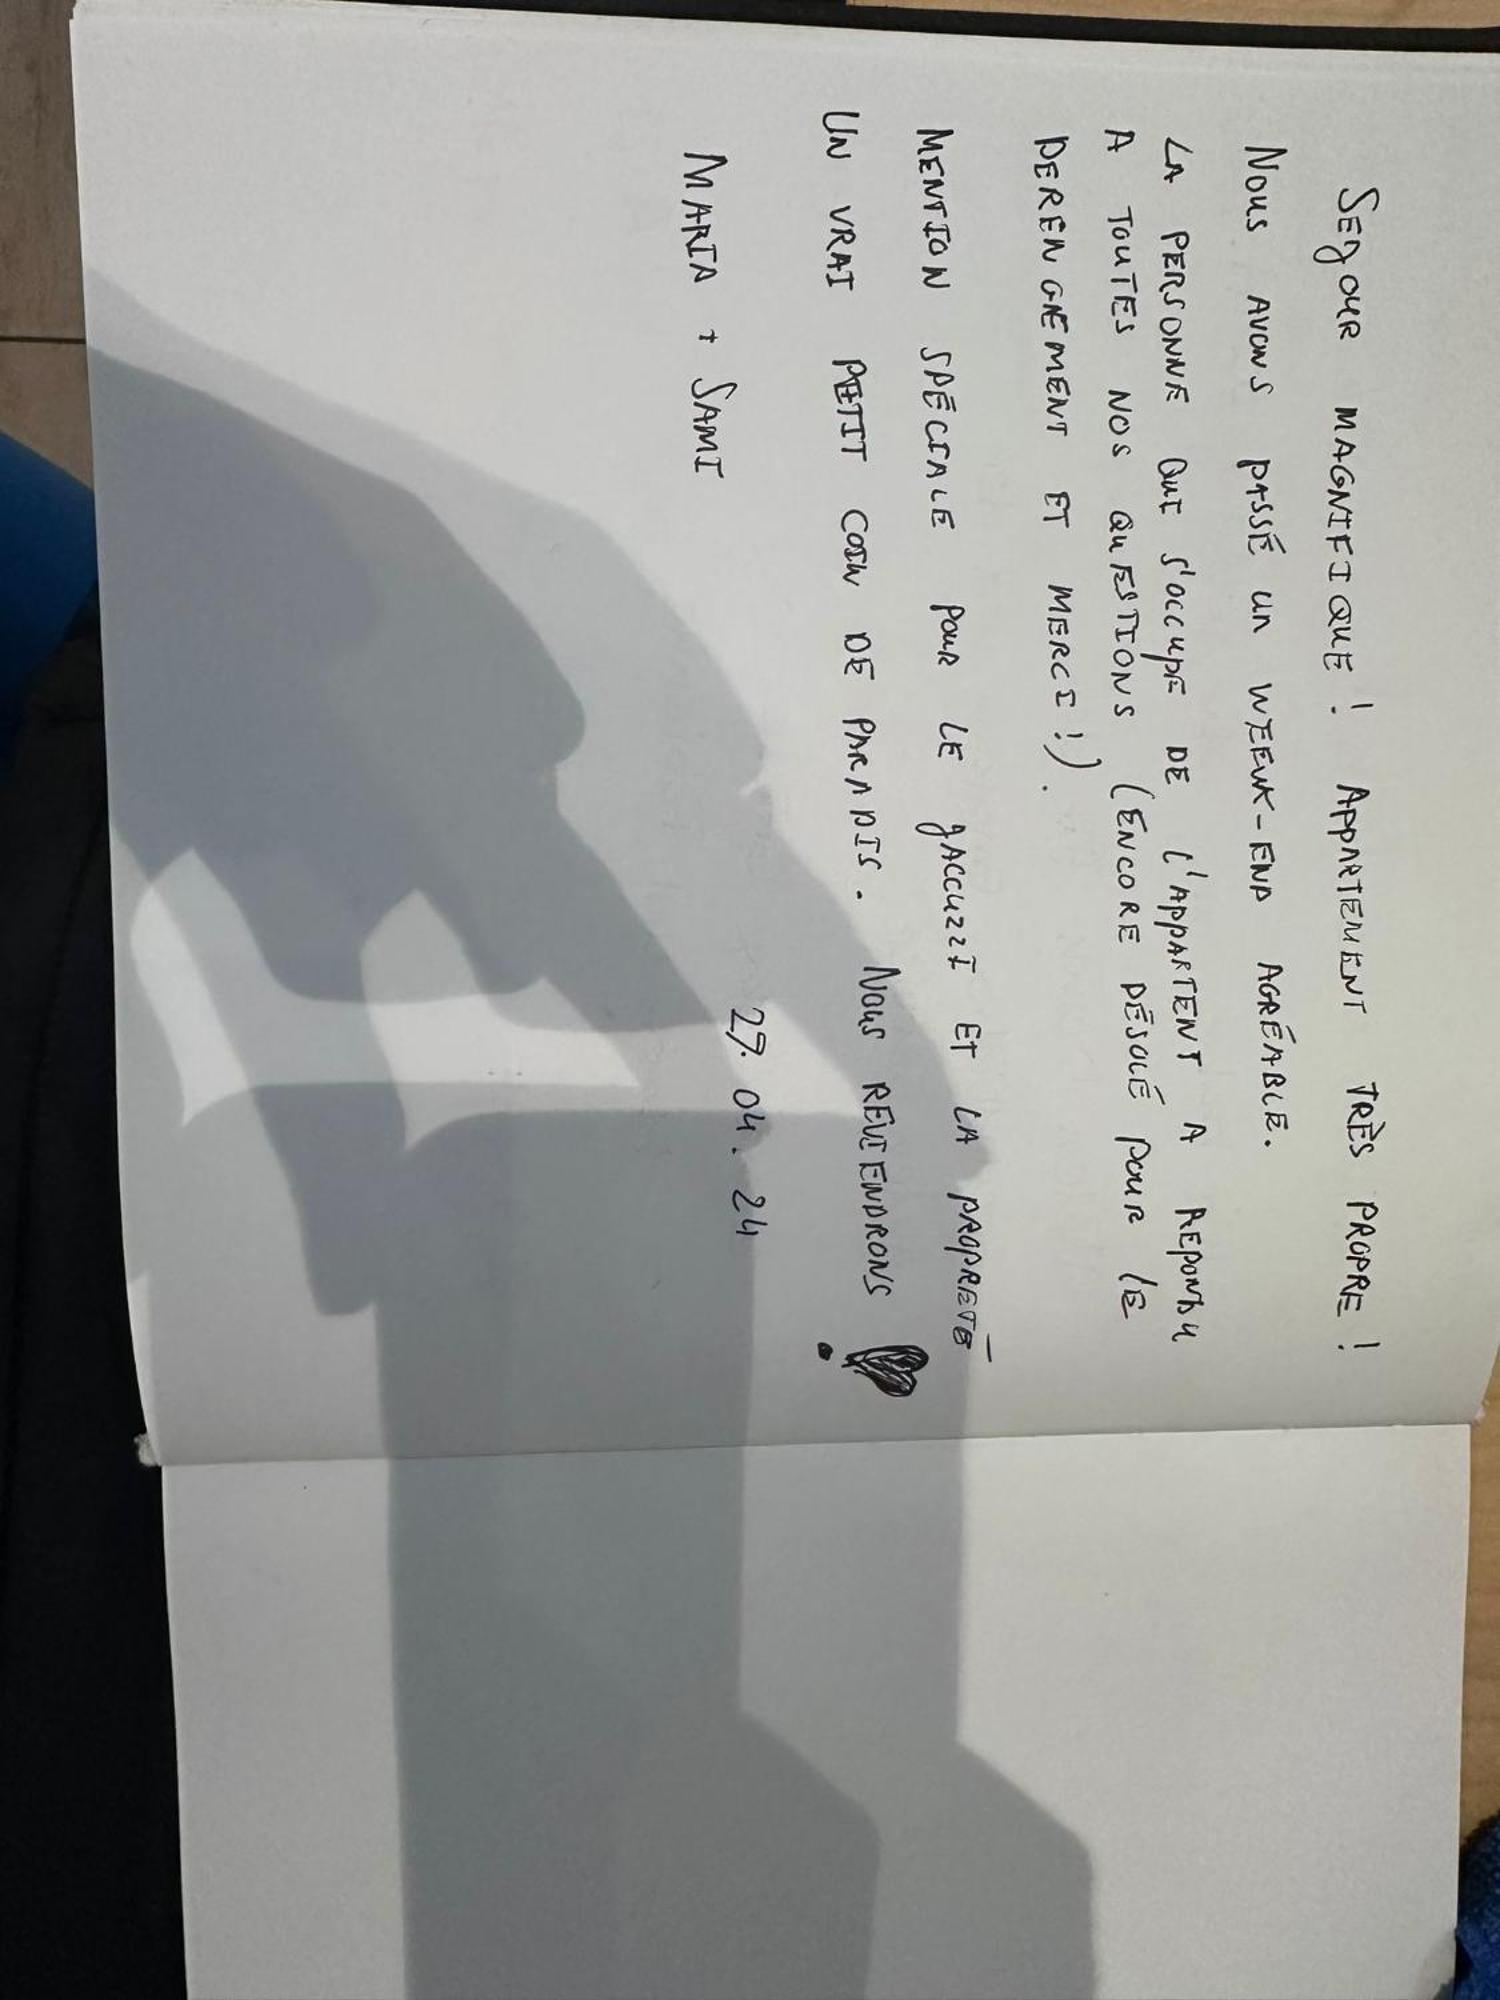 SEJOUR MAGNIFIQUE ! APPARTEMENT TRÈS PROPRE !
NOUS AVONS PASSÉ UN WEEUK-END AGRÉABLE.
LA PERSONNE QUI S'OCCUPE DE L'APPARTENT A REPONDU
A TOUTES NOS QUESTIONS (ENCORE DÉSOLÉ POUR LE
DERENGEMENT ET MERCI !).
MENTION SPÉCIALE POUR LE JACCUZZI ET LA PROPRETÉ
UN VRAI PETIT COIN DE PARADIS. NOUS REVIENDRONS !
MARIA + SAMI
27. 04. 24